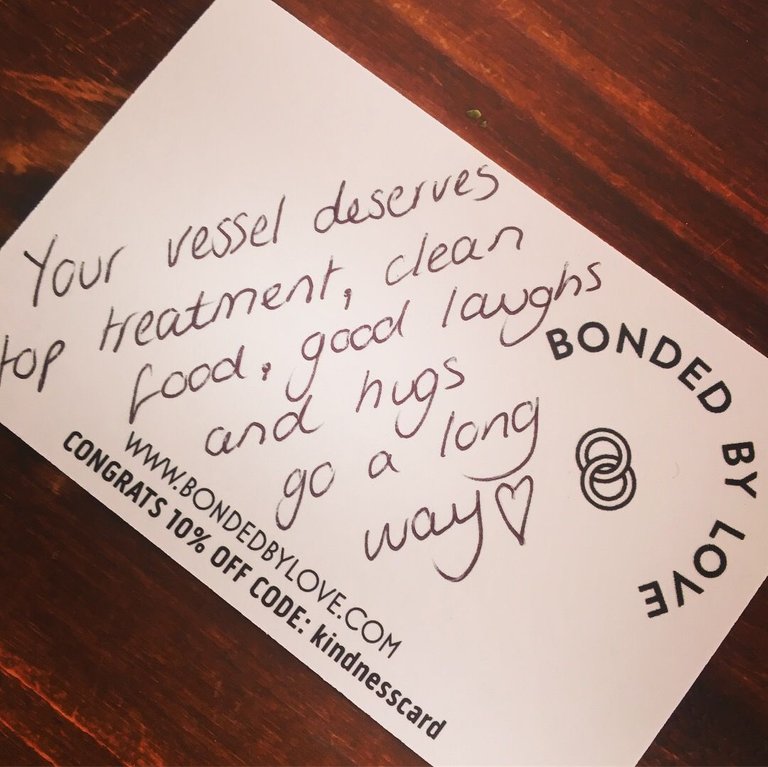 Your vessel deserves
top treatment, clean
food, good laughs
and hugs
go a long
way♡
BONDED BY LOVE
WWW.BONDEDBYLOVE.COM
CONGRATS 10% OFF CODE: kindnesscard